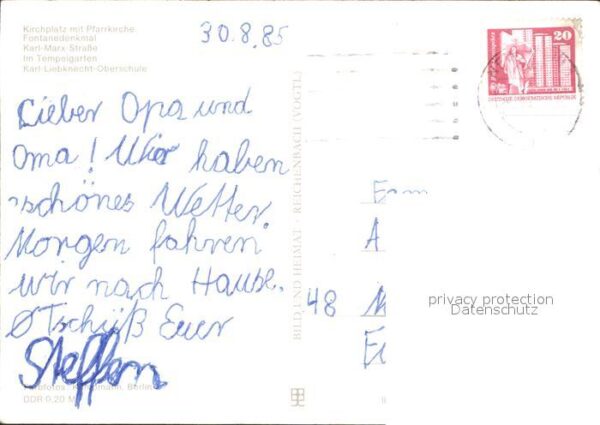 Kirchplatz mit Pfarrkirche
Fontanedenkmal
Karl-Marx-Straße
Im Tempelgarten
Karl-Liebknecht-Oberschule
30.8.85
20
DEUTSCHE DEMOKRATISCHE REPUBLIK
Lieber Opa und
Oma! Wir haben
schönes Wetter.
Morgen fahren
wir nach Hause.
Tschüß Euer
Steffen
BILD UND HEIMAT · REICHENBACH (VOGTL)
48
privacy protection
Datenschutz
Berlin
DDR 0,20 M